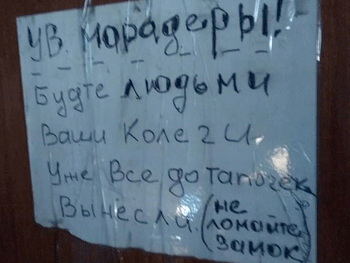 УВ. МАРАДЕРЫ!
Будте людьми
Ваши Колеги
Уже Все до тапочек
Вынесли (не ломайте замок)